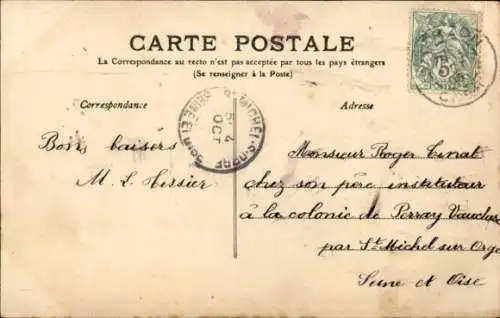 CARTE POSTALE
La Correspondance au recto n'est pas acceptée par tous les pays étrangers
(Se renseigner à la Poste)
Correspondance
Adresse
Bons baisers
M. L. Tessier
Monsieur Roger Tinat
chez son père instituteur
à la colonie de Perray Vaucluse
par St Michel sur Orge
Seine et Oise
OCT
5